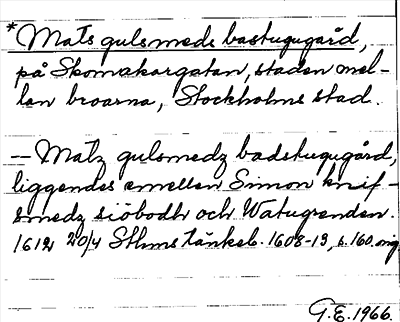 *Mats gulsmeds bastugugård,
på Skomakargatan, staden mel-
lan broarna, Stockholms stad.
-- Matz gulsmedz badstugugård,
liggendes emellen Simon knif-
smedz siöbodh och Watugrenden.
1612 20/4 Sthms tänkeb. 1608-13, s. 160. orig.
G.E. 1966.